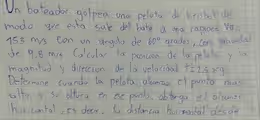 Un bateador golpea una pelota de beisbol de
modo que esta sale del bate a una rapidez
m/s con un ángulo de grados, con gravedad
de 9.8 m/s Calcular la posición de la pelota y la
magnitud y dirección de la velocidad
Determine cuando la pelota alcanza el punto mas
alto y su altura en ese punto obtenga el alcance
horizontal es decir, la distancia horizontal desde